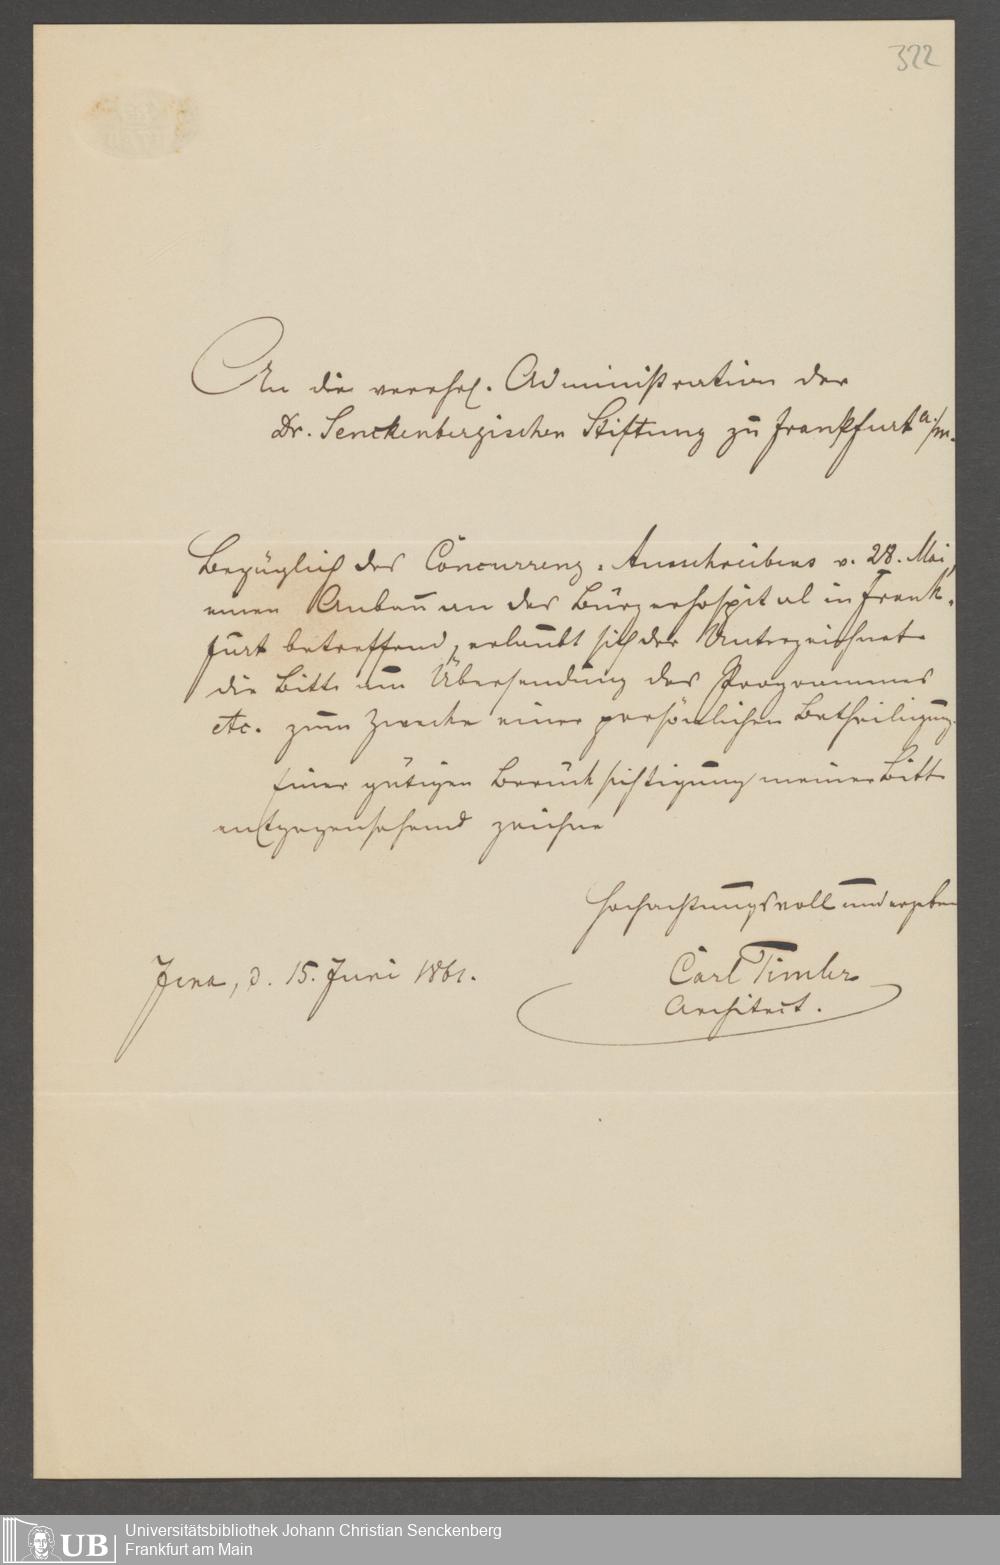 322
An die verehrl. Administration der
Dr. Senckenbergischen Stiftung zu Frankfurt a/m.
Bezüglich des Concurrenz-Ausschreibens v. 28. Mai,
einen Anbau an das Bürgerhospital in Frank-
furt betreffend, erlaubt sich der Unterzeichnete
die Bitte um Übersendung des Programmes
etc. zum Zwecke einer persönlichen Betheiligung.
Einer gütigen Berücksichtigung meiner Bitte
entgegensehend zeichne
Hochachtungsvoll und ergeben
Carl Timler
Architect.
Jena, d. 15. Juni 1861.
UB
Universitätsbibliothek Johann Christian Senckenberg
Frankfurt am Main